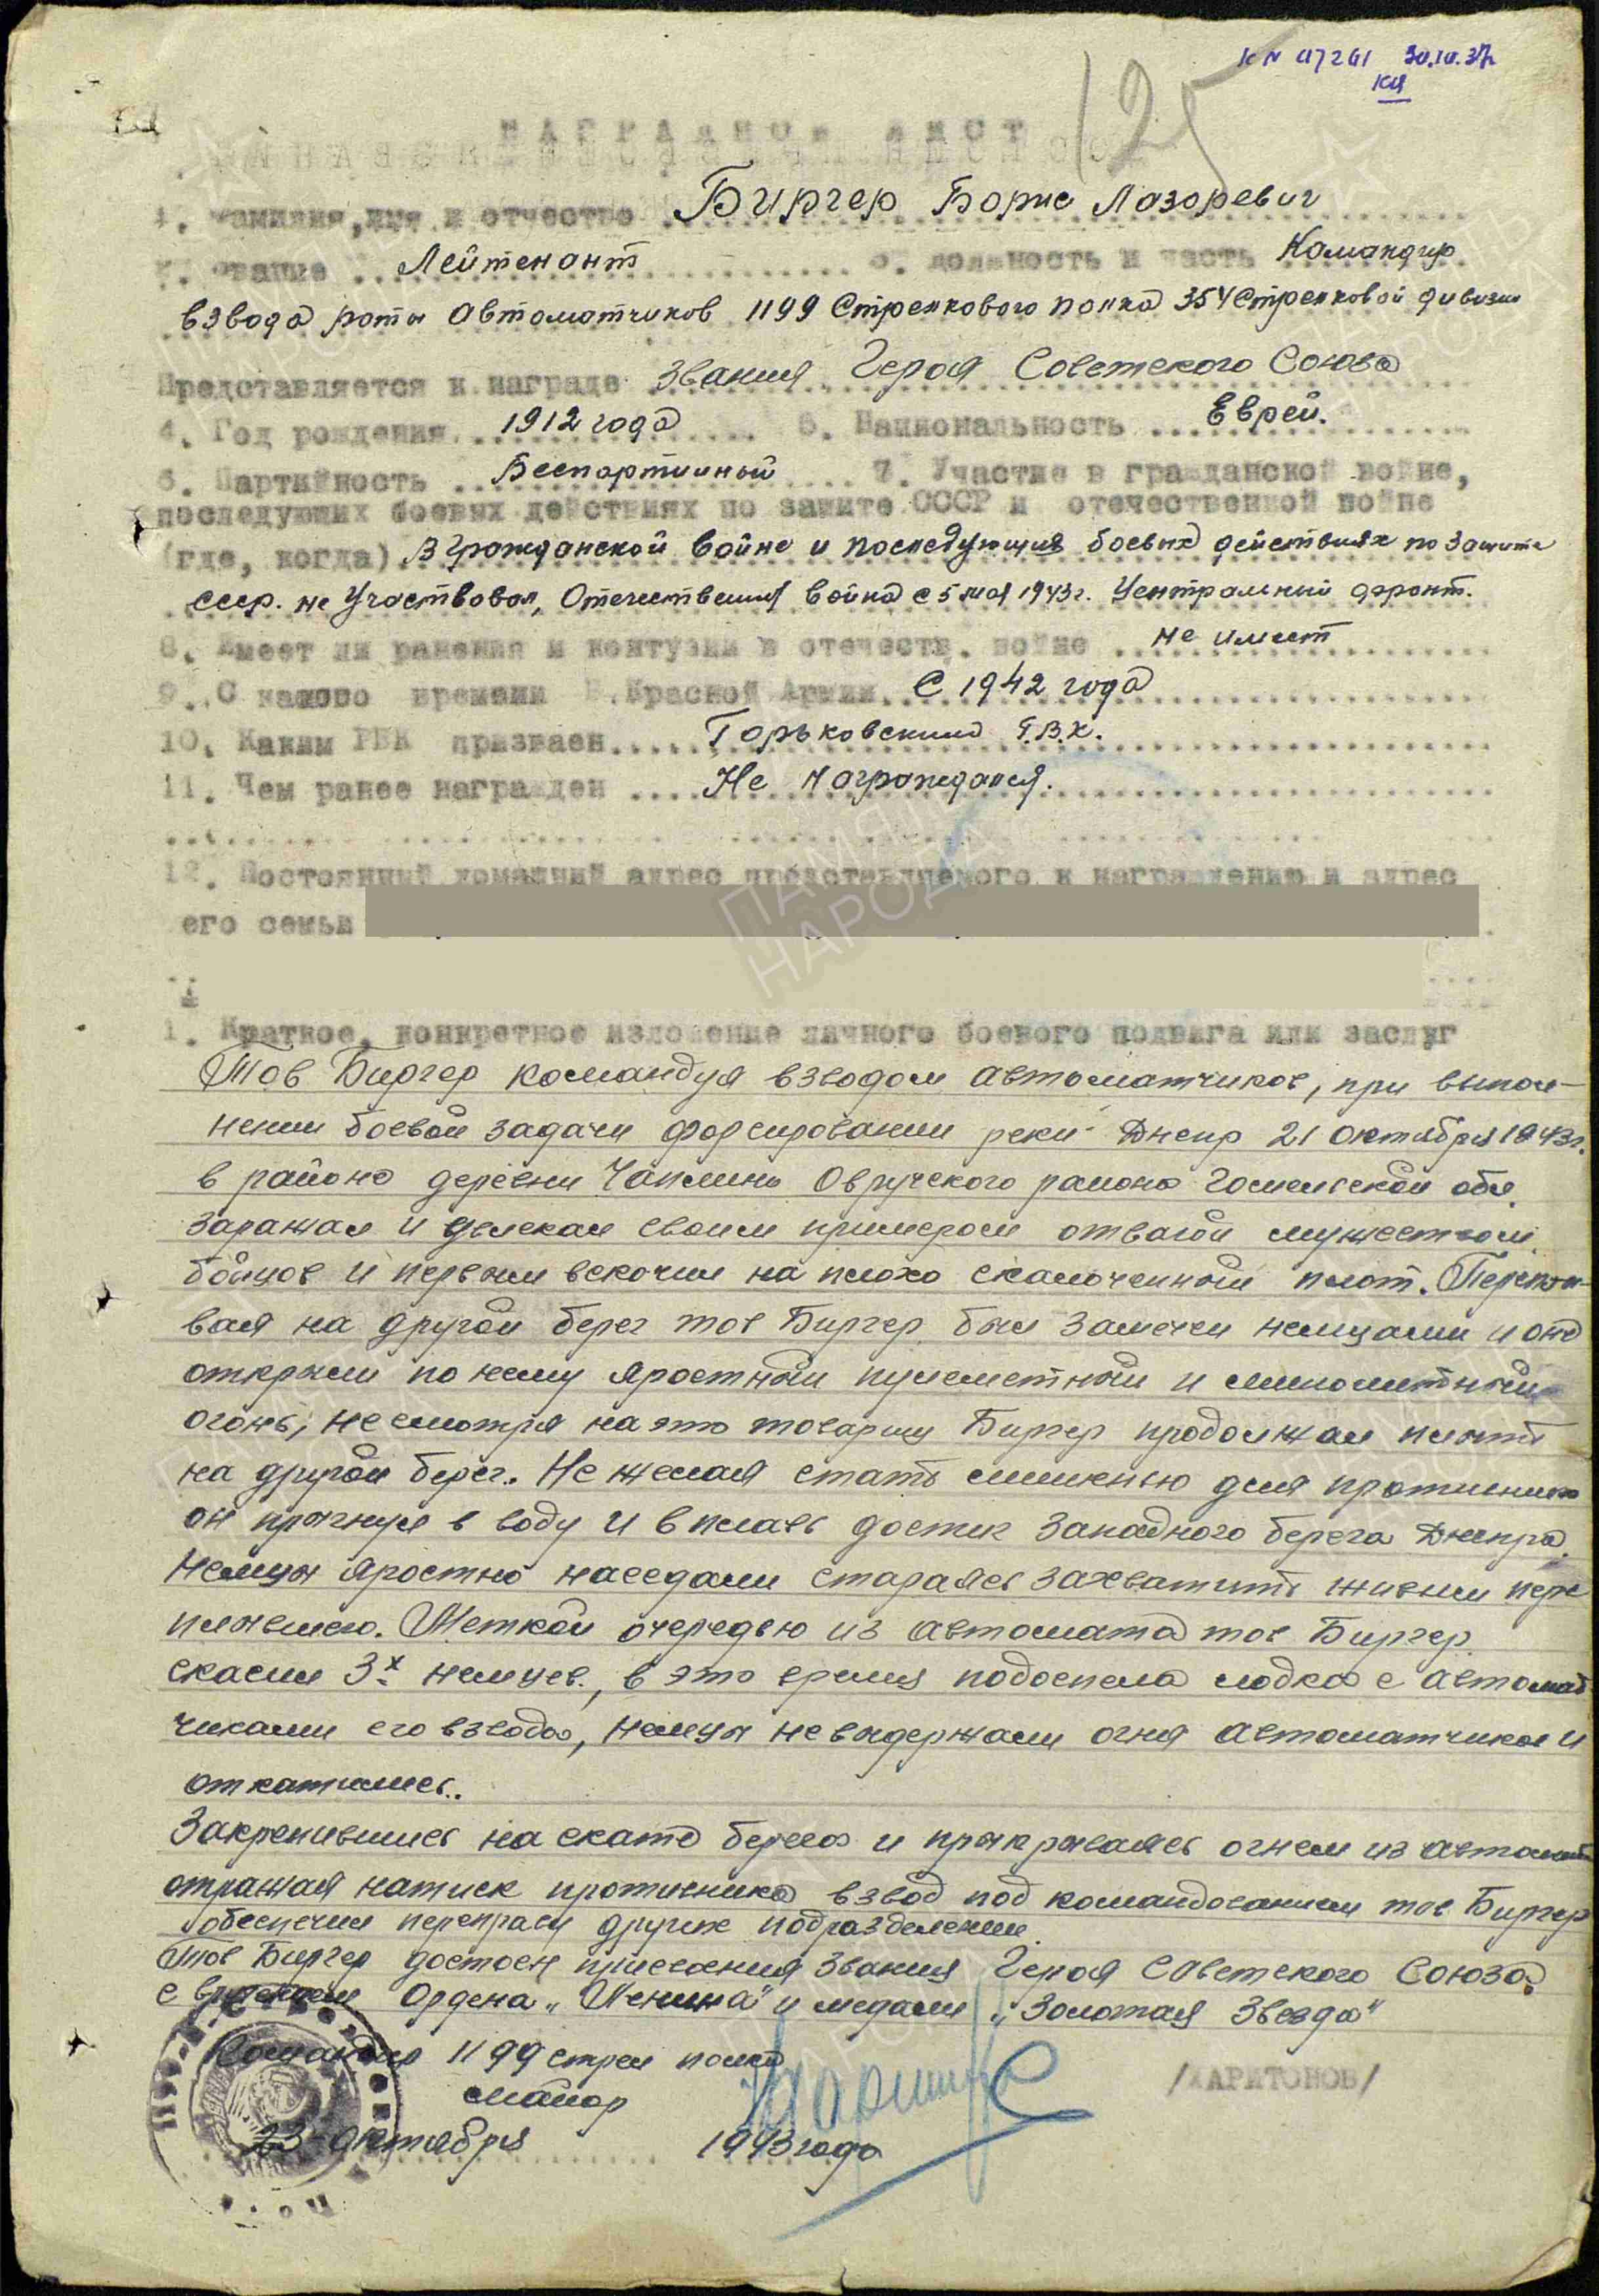 125
НАГРАДНОЙ ЛИСТ
1. Фамилия, имя и отчество Биргер Борис Лазоревич
2. Звание Лейтенант 3. должность и часть Командир
взвода роты Автоматчиков 1199 Стрелкового полка 354 Стрелковой дивизии
Представляется к награде звания Героя Советского Союза
4. Год рождения 1912 года 5. Национальность Еврей.
6. Партийность Беспартийный 7. Участие в гражданской войне,
последующих боевых действиях по защите СССР и отечественной войне
(где, когда) В Гражданской войне и последующих боевых действиях по защите
СССР. не участвовал, Отечественная война с 5 мая 1943 г. Центральный фронт.
8. Имеет ли ранения и контузии в отечеств. войне не имеет
9. С какого времени в Красной Армии С 1942 года
10. Каким РВК призван Горьковским Г.В.К.
11. Чем ранее награжден Не награждался.
12. Постоянный домашний адрес представляемого к награждению и адрес
его семьи
1. Краткое, конкретное изложение личного боевого подвига или заслуг
Тов Биргер командуя взводом автоматчиков, при выпол-
нении боевой задачи форсировании реки Днепр 21 октября 1943 г.
в районе деревни Чаплинь Овручского района Гомельской обл.
заражал и увлекал своим примером отвагой мужеством
бойцов и первым вскочил на плохо сколоченный плот. Переплы-
вая на другой берег тов Биргер был замечен немцами и они
открыли по нему яростный пулеметный и минометный
огонь, несмотря на это товарищ Биргер продолжал плыть
на другой берег. Не желая стать мишенью для противника
он прыгнул в воду и вплавь достиг западного берега Днепра.
Немцы яростно наседали стараясь захватить живым пере
плывшего. Меткой очередью из автомата тов Биргер
скасил 3х немцев., в это время подоспела лодка с автомат
чиками его взвода, немцы не выдержали огня автоматчиков и
откатились.
Закрепившись на скате берега и прикрываясь огнем из автомата
отражая натиск противника взвод под командованием тов Биргер
обеспечил переправу других подразделений.
Тов Биргер достоен присвоения звания Героя Советского Союза
с вручением Ордена „Ленина" и медали „Золотая Звезда"
Командир 1199 стрел полка
майор /ХАРИТОНОВ/
23 октября 1943 года
ПАМЯТЬ
НАРОДА